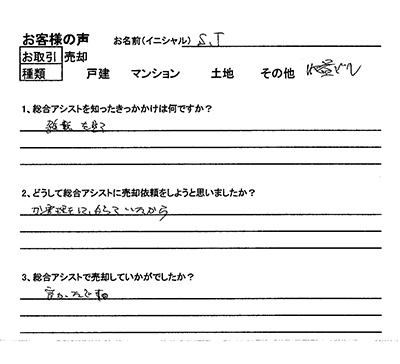 お客様の声 お名前(イニシャル) S.T
お取引 売却
種類 戸建 マンション 土地 その他
1、総合アシストを知ったきっかけは何ですか?
を見て
2、どうして総合アシストに売却依頼をしようと思いましたか?
3、総合アシストで売却していかがでしたか?